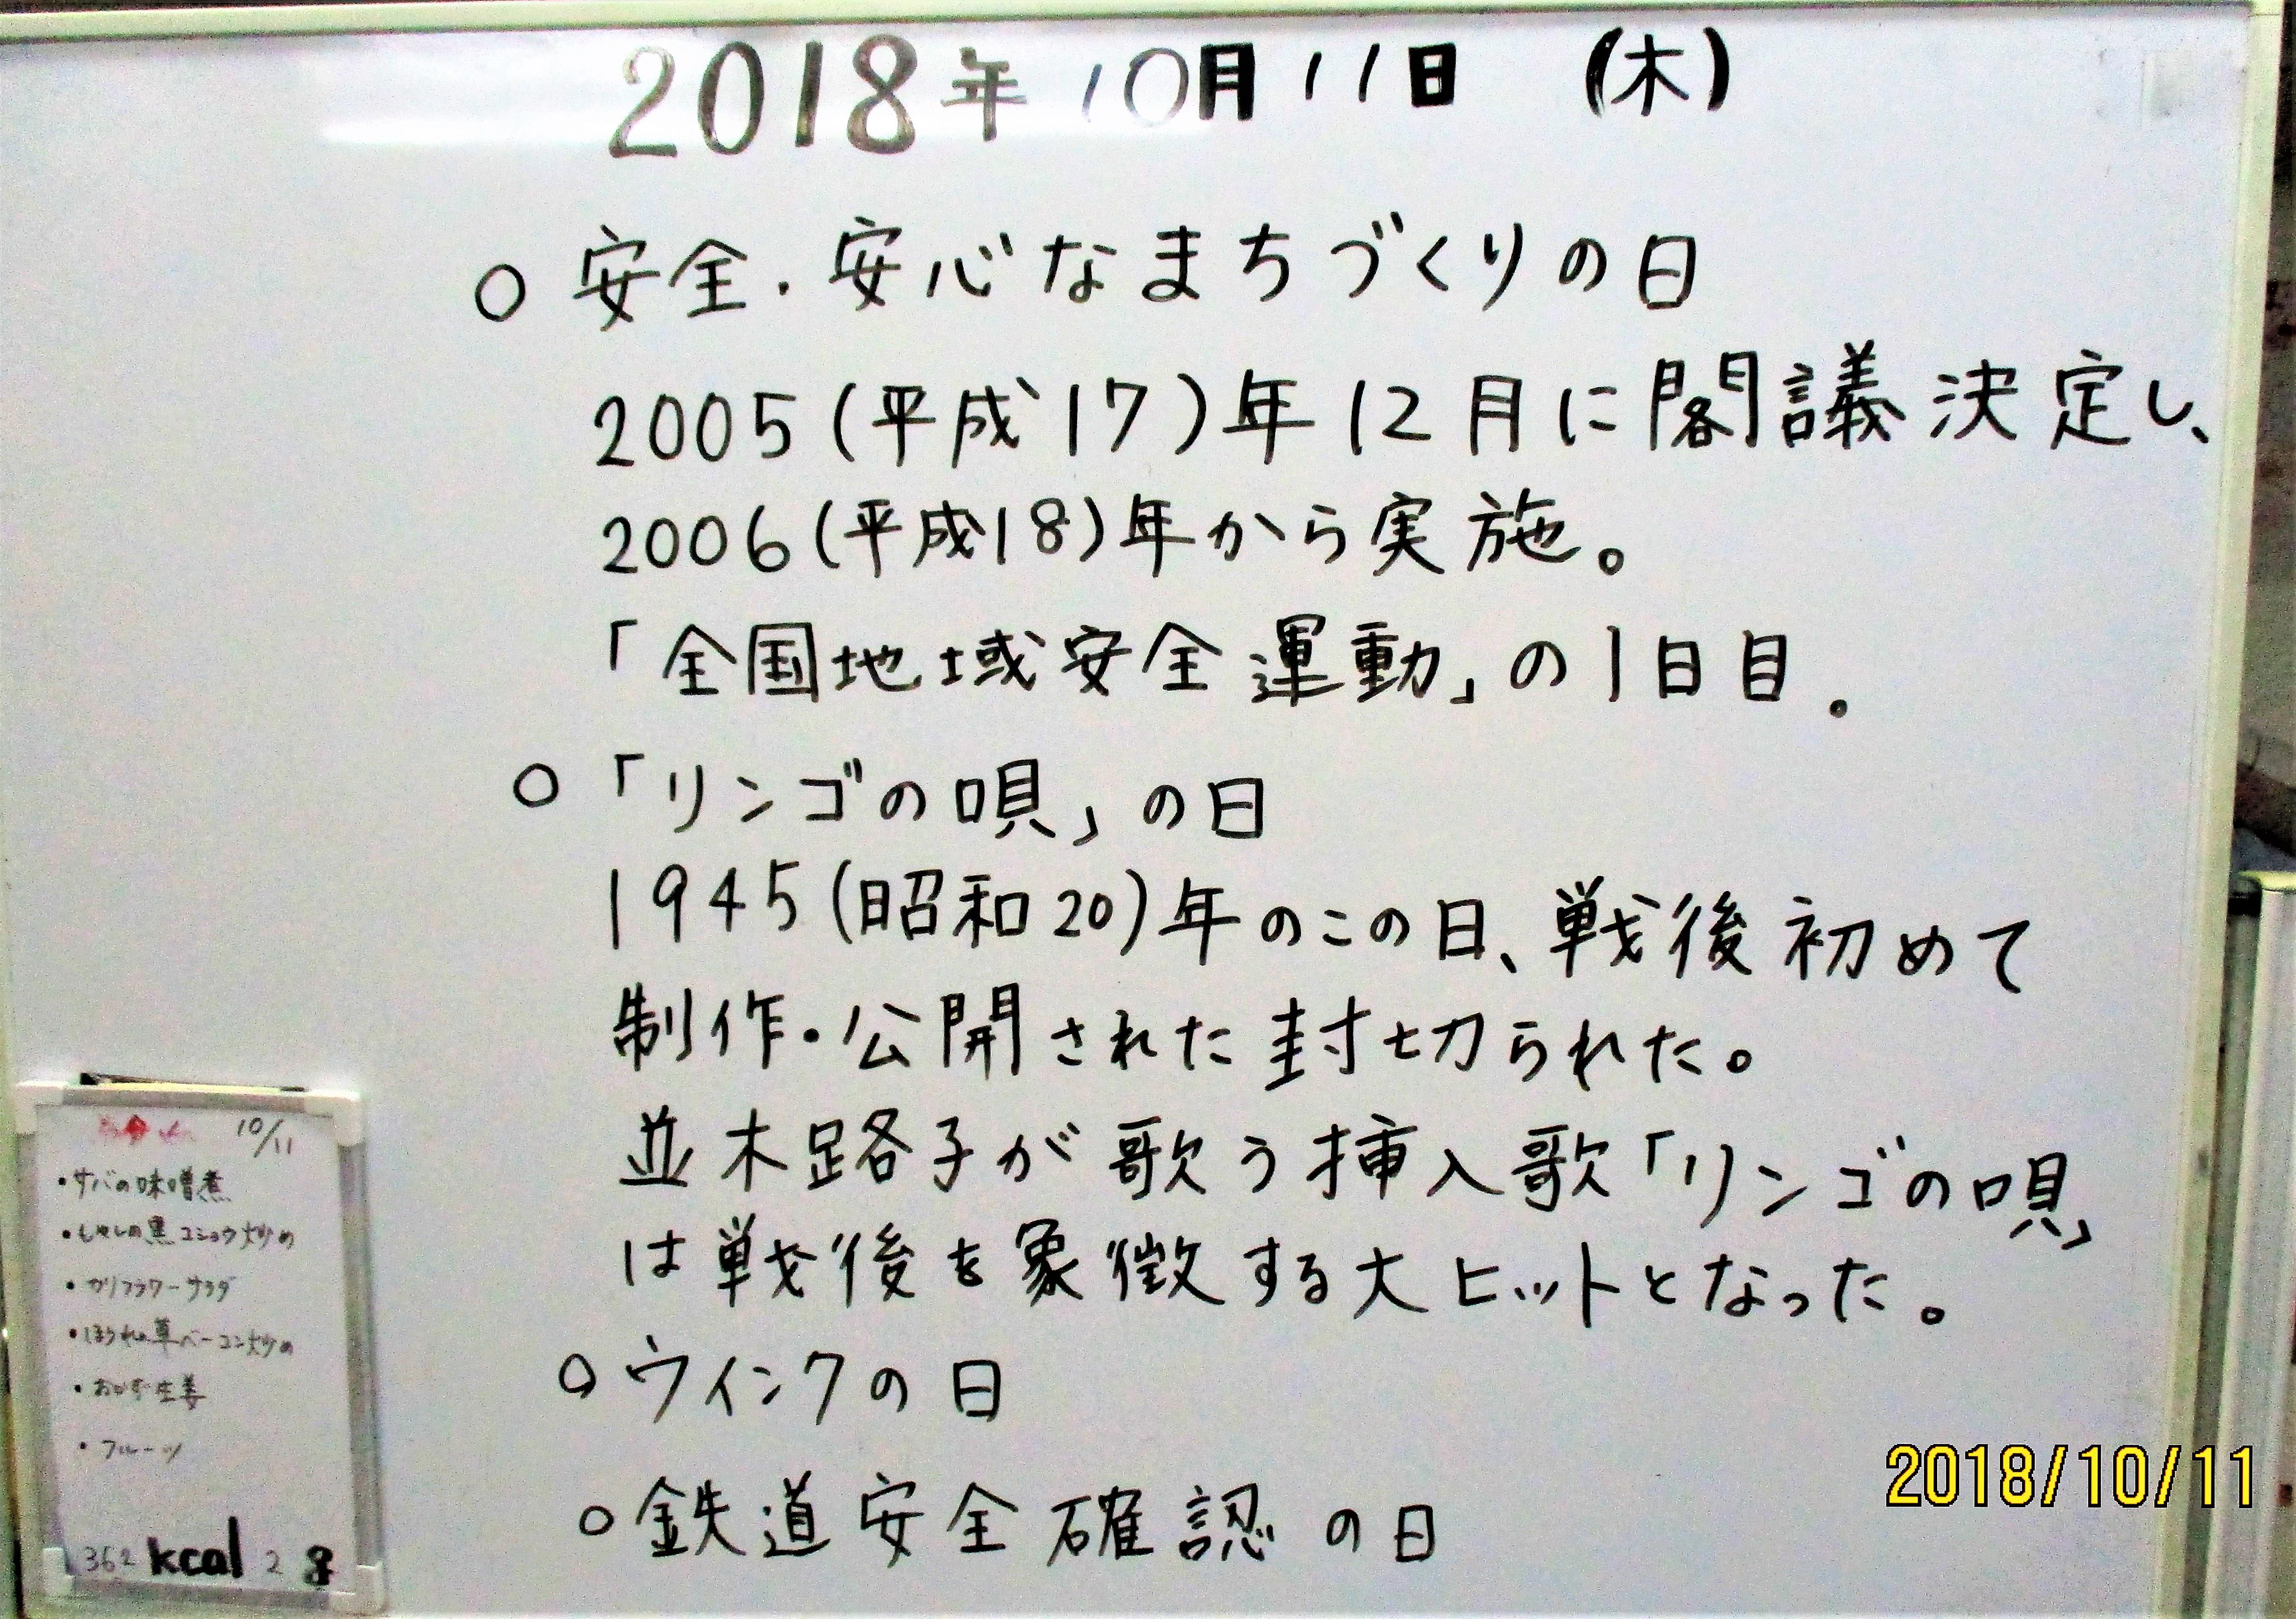 2018年 10月11日 (木)
○ 安全・安心なまちづくりの日
2005(平成17)年12月に閣議決定し、
2006(平成18)年から実施。
「全国地域安全運動」の1日目.
○ 「リンゴの唄」の日
1945(昭和20)年のこの日、戦後初めて
制作・公開された封切られた。
並木路子が歌う挿入歌「リンゴの唄」
は戦後を象徴する大ヒットとなった。
○ ウインクの日
○ 鉄道安全確認の日
10/11
・サバの味噌煮
・もやしの黒コショウ炒め
・カリフラワーサラダ
・ほうれん草ベーコン炒め
・おかず生姜
・フルーツ
362 kcal 2
2018/10/11